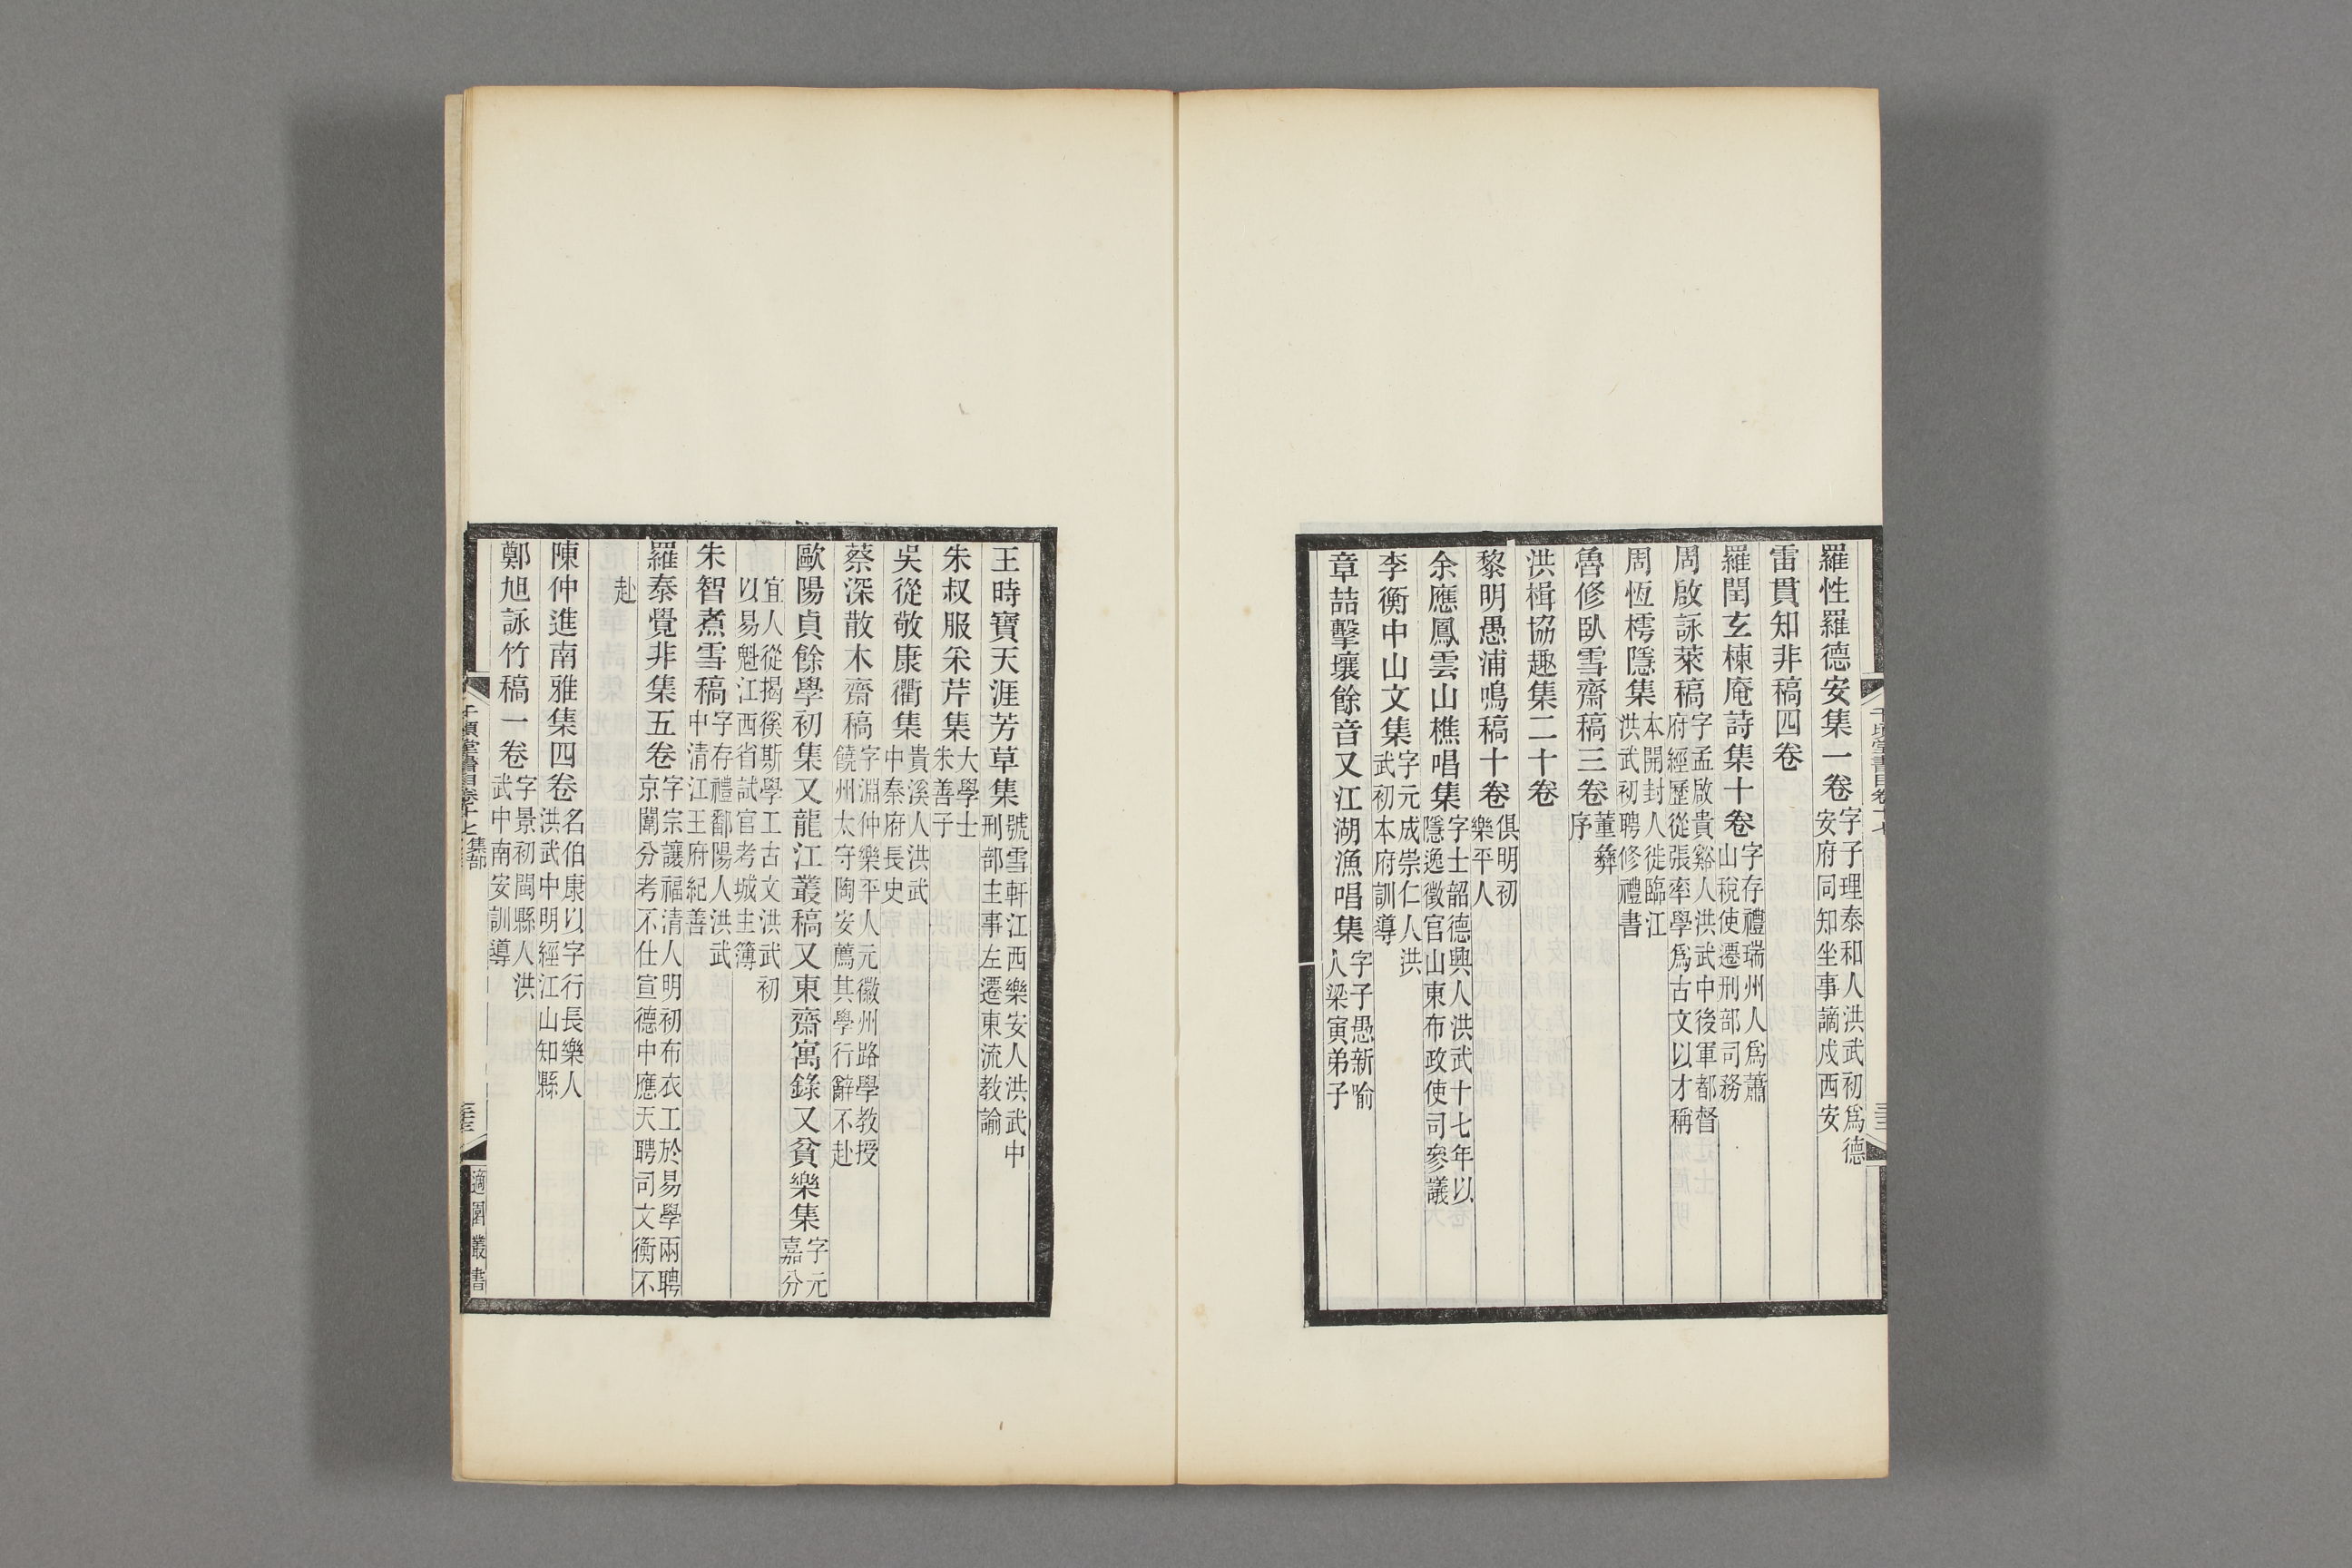 羅性羅德安集一卷字子理泰和人洪武初爲德安府同知坐事謫戍西安
雷貫知非稿四卷
羅閏玄棟庵詩集十卷字存禮瑞州人爲蕭山稅使遷刑部司務
周啟詠萊稿字孟啟貴谿人洪武中後軍都督府經歷從張率學爲古文以才稱
周恆樗隱集本開封人徙臨江洪武初聘修禮書
魯修臥雪齋稿三卷董彝序
洪楫協趣集二十卷
黎明愚浦鳴稿十卷俱明初樂平人
余應鳳雲山樵唱集字士韶德興人洪武十七年以隱逸徵官山東布政使司參議
李衡中山文集字元成崇仁人洪武初本府訓導
章喆擊壤餘音又江湖漁唱集字子愚新喻人梁寅弟子
王時寶天涯芳草集號雪軒江西樂安人洪武中刑部主事左遷東流教諭
朱叔服采芹集大學士朱善子
吳從敬康衢集貴溪人洪武中秦府長史
蔡深散木齋稿字淵仲樂平人元徽州路學教授饒州太守陶安薦其學行辭不赴
歐陽貞餘學初集又龍江叢稿又東齋寓錄又貧樂集字元嘉分
宜人從揭徯斯學工古文洪武初以易魁江西省試官考城主簿
朱智煮雪稿字存禮鄱陽人洪武中清江王府紀善
羅泰覺非集五卷字宗讓福清人明初布衣工於易學兩聘京闈分考不仕宣德中應天聘司文衡不
赴
陳仲進南雅集四卷名伯康以字行長樂人洪武中明經江山知縣
鄭旭詠竹稿一卷字景初閩縣人洪武中南安訓導
千頃堂書目卷十七 集部
適園叢書